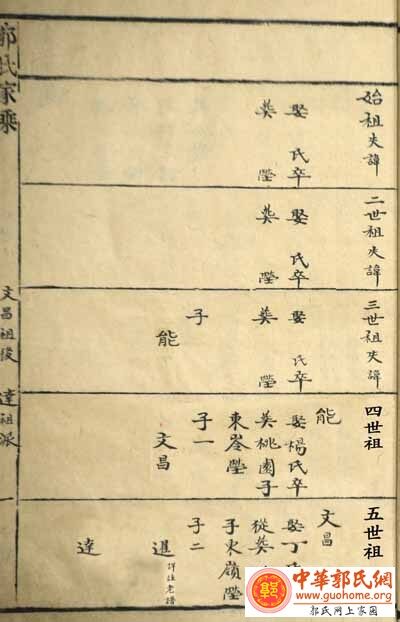 始祖失諱
娶 氏卒
葬 塋
二世祖失諱
娶 氏卒
葬 塋
三世祖失諱
娶 氏卒
葬 塋
子
能
四世祖
能
娶楊氏卒
葬桃園子
東岺塋
子一
文昌
五世祖
文昌
娶丁
從葬
子東嶺塋
子二
詳註老譜
達
郭氏家乘
文昌祖後 達祖派
一
中華郭氏網
www.guohome.org
郭氏网上家園